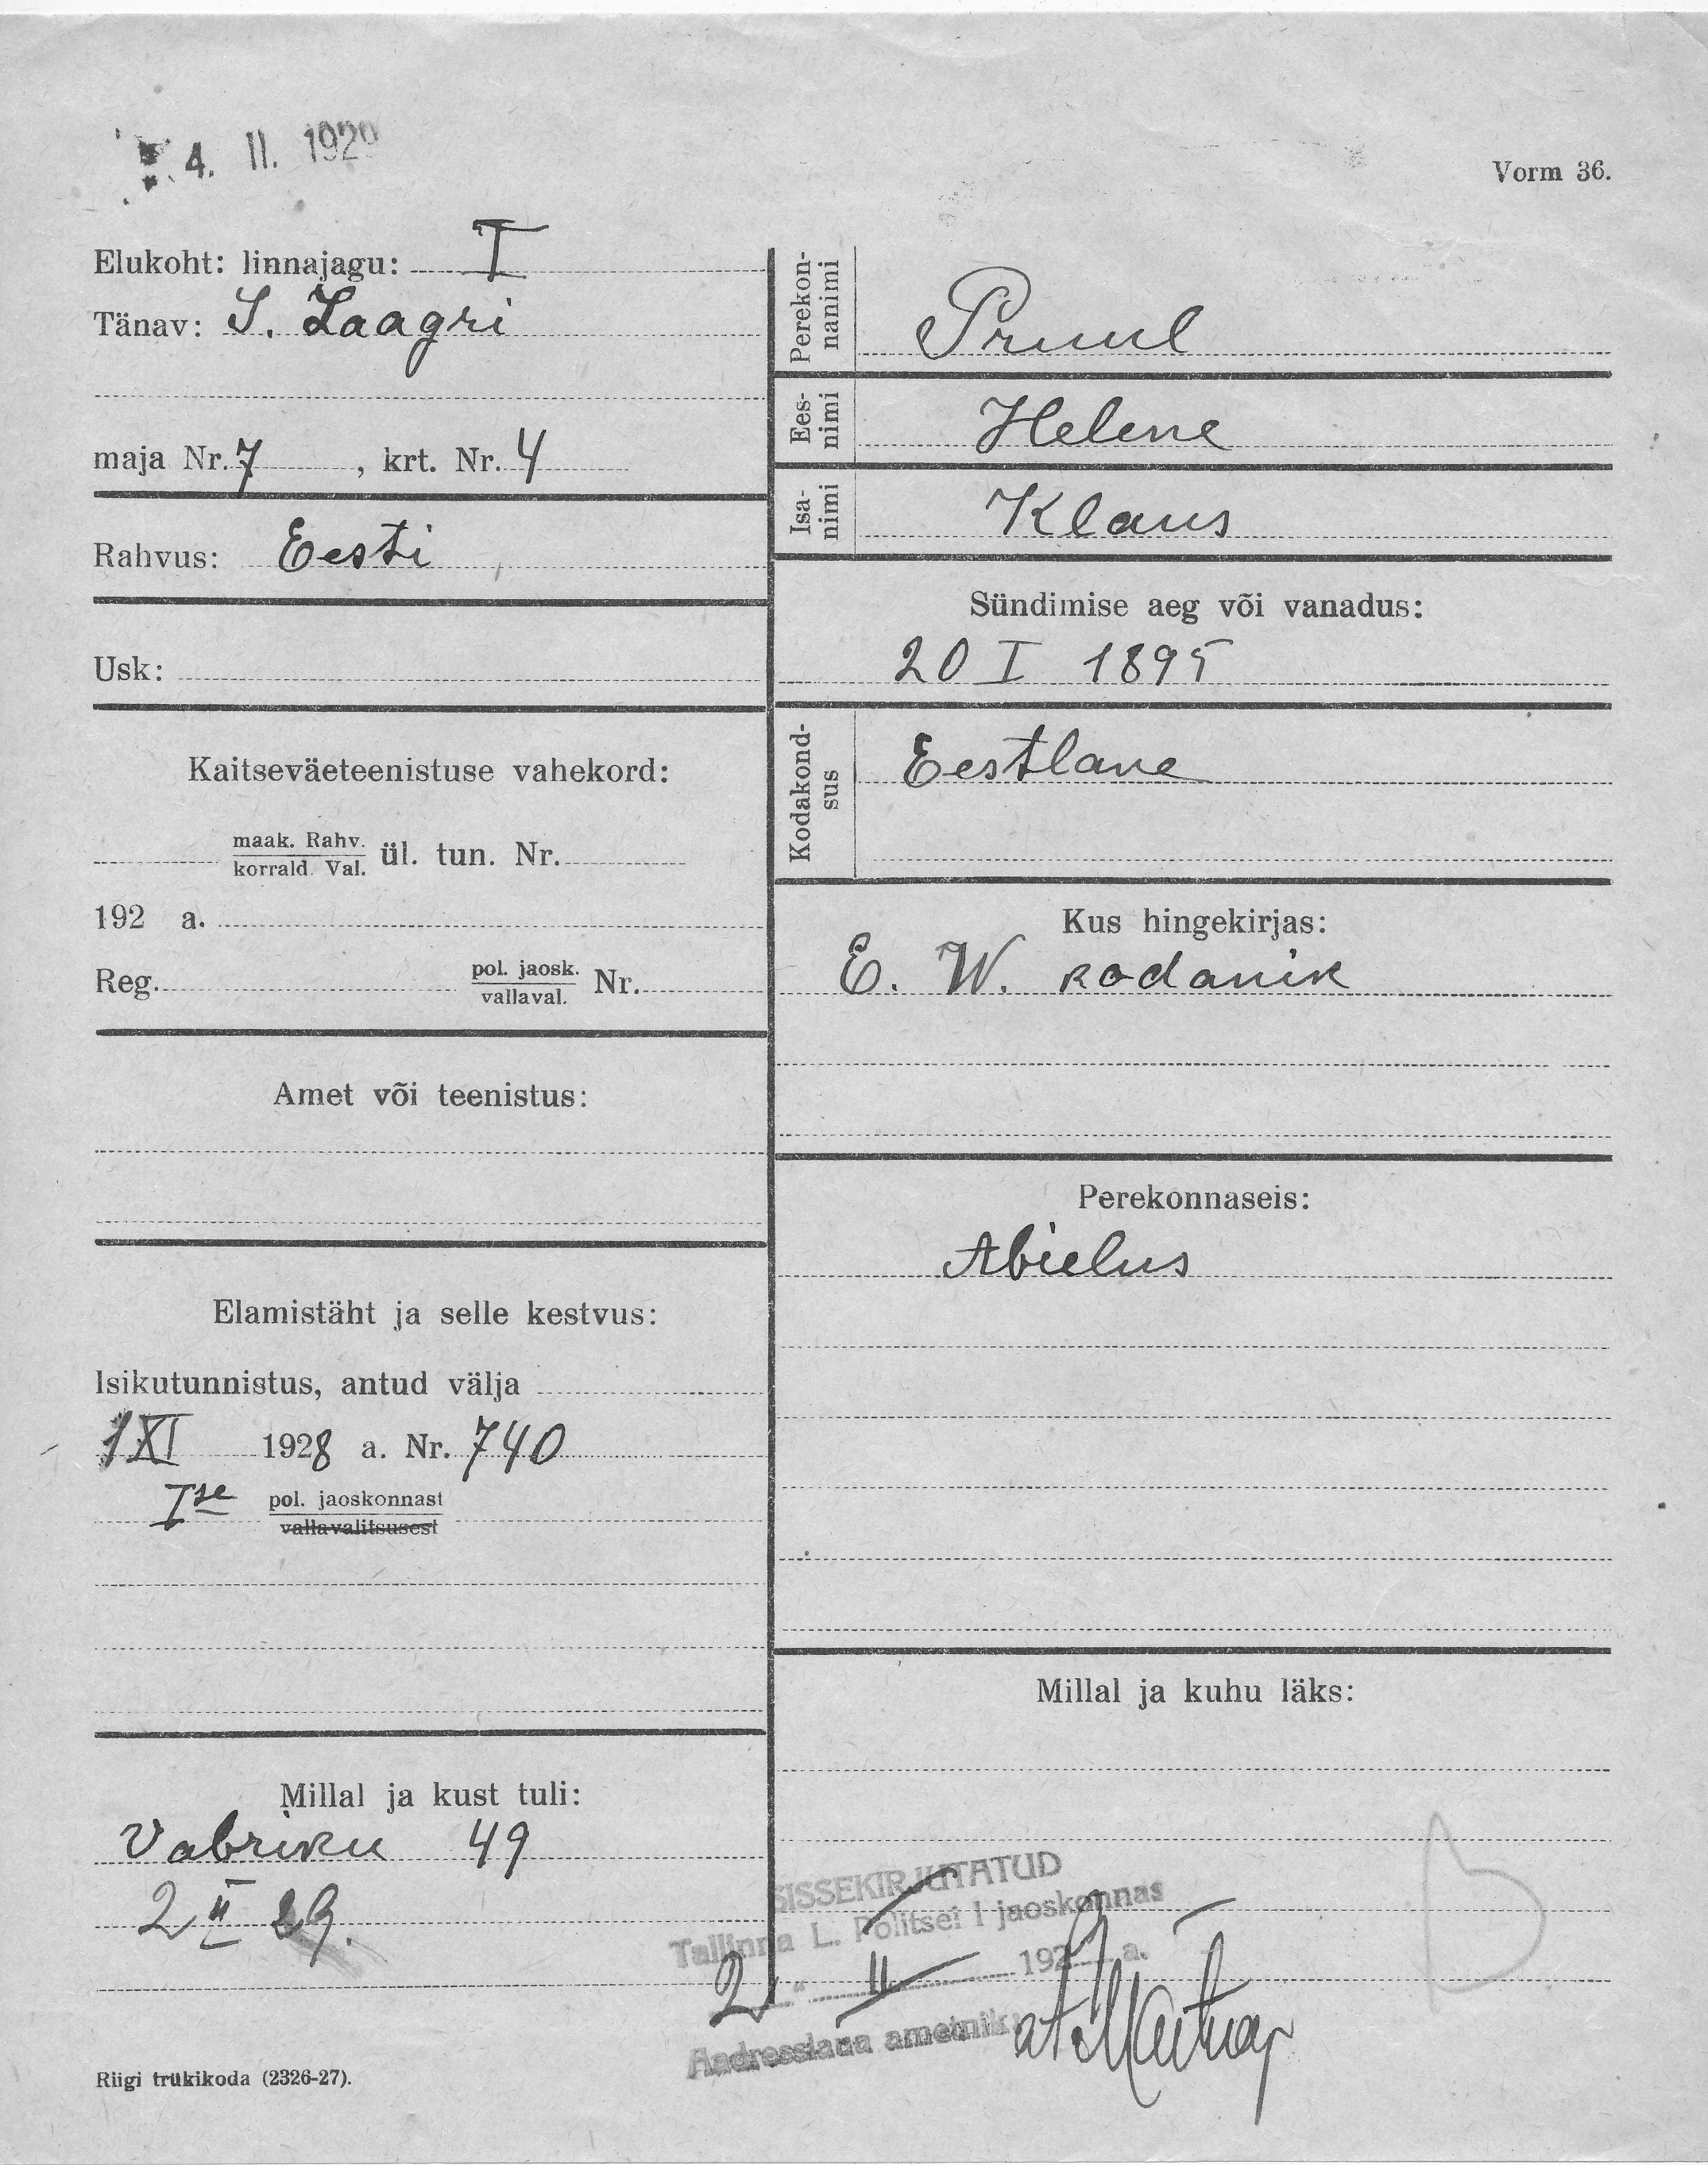 4. II. 1929
Vorm 36.
Elukoht: linnajagu: I
Tänav: S. Laagri
maja Nr. 7 , krt. Nr. 4
Rahvus: Eesti
Usk:
Kaitseväeteenistuse vahekord:
maak. Rahv.
korrald. Val.
ül. tun. Nr.
192 a.
Reg. pol. jaosk.
vallaval.
Nr.
Amet või teenistus:
Elamistäht ja selle kestvus:
Isikutunnistus, antud välja
1 XI 1928 a. Nr. 740
Ise pol. jaoskonnast
vallavalitsusest
Millal ja kust tuli:
Vabriku 49
2 II 29.
Riigi trükikoda (2326-27).
Perekon-
nanimi
Pruul
Ees-
nimi
Helene
Isa-
nimi
Klaus
Sündimise aeg või vanadus:
20 I 1895
Kodakond-
sus
Eestlane
Kus hingekirjas:
E. W. kodanik
Perekonnaseis:
Abielus
Millal ja kuhu läks:
SISSEKIRJUTATUD
Tallinna L. Politsei I jaoskonnas
2 " II 1929 a.
Aadresslaua ametnik